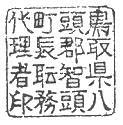 鳥取県八
頭郡智頭
町長職務
代理者印